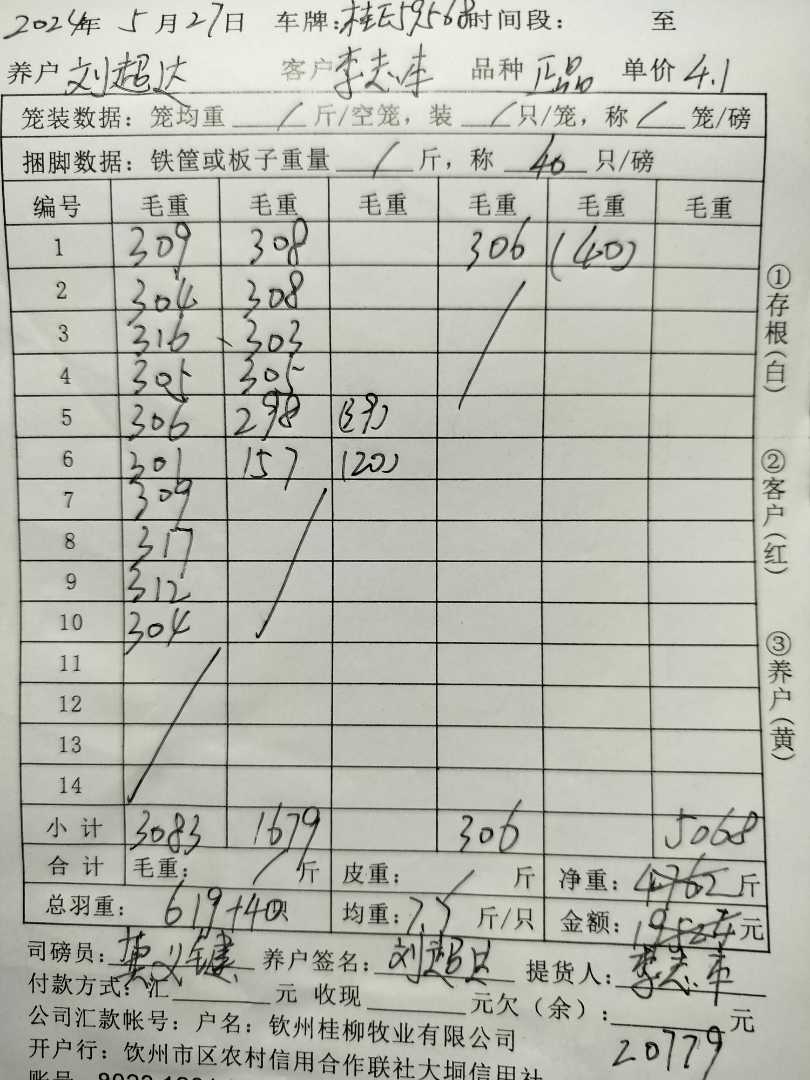 2024年 5月27日 车牌:桂E59568时间段: 至
养户 刘超达 客户 李志车 品种 正品 单价 4.1
笼装数据: 笼均重 / 斤/空笼, 装 / 只/笼, 称 / 笼/磅
捆脚数据: 铁筐或板子重量 / 斤, 称 40 只/磅
编号 毛重 毛重 毛重 毛重 毛重 毛重
1 309 308 306 (40)
2 304 308
3 316 303
4 305 305
5 306 298 (39)
6 301 157 (20)
7 309
8 317
9 312
10 304
11
12
13
14
小计 3083 1679 306 5068
合计 毛重: / 斤 皮重: / 斤 净重: 4762 斤
总羽重: 619+40只 均重: 7.5 斤/只 金额: 19524元
司磅员: 养户签名: 刘超达 提货人: 李志车
付款方式: 汇 元 收现 元欠(余): 元
20779
公司汇款帐号: 户名: 钦州桂柳牧业有限公司
开户行: 钦州市区农村信用合作联社大垌信用社
账号
①存根(白)
②客户(红)
③养户(黄)